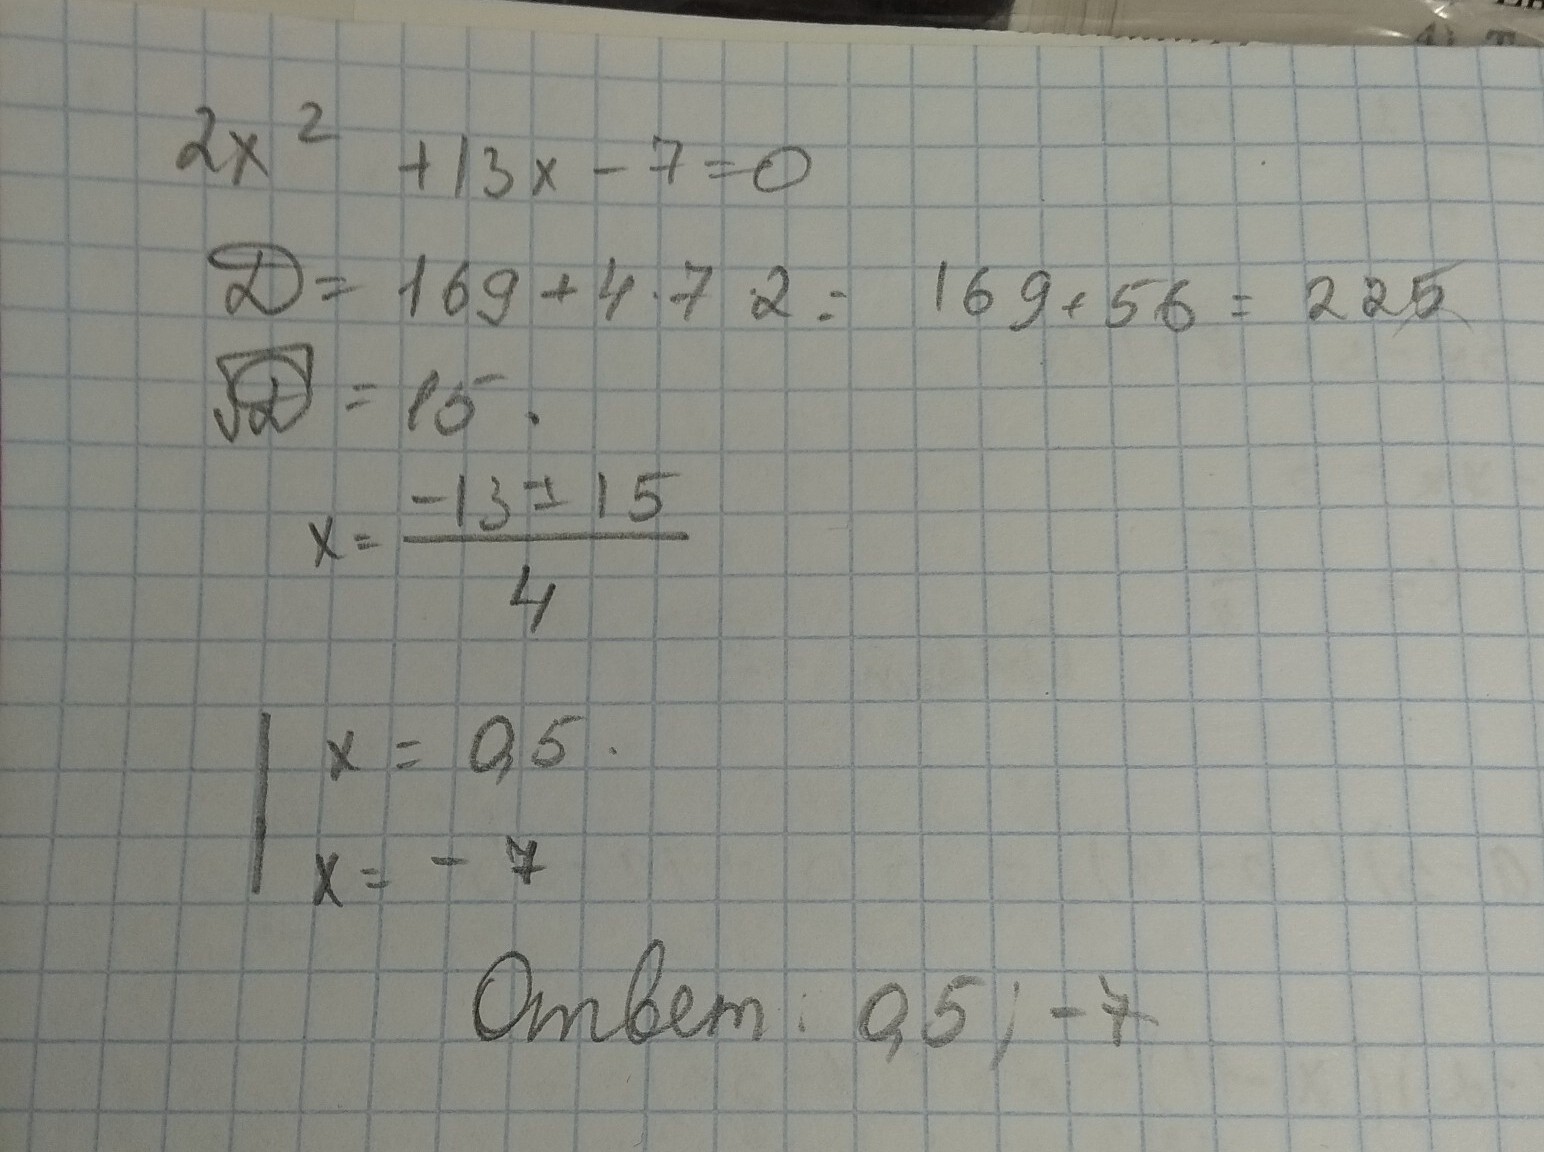 2x² +13x - 7 = 0
D = 169 + 4·7·2 = 169 + 56 = 225
√D = 15.
x = (-13 ± 15)/4
x = 0,5.
x = - 7
Ответ: 0,5; -7